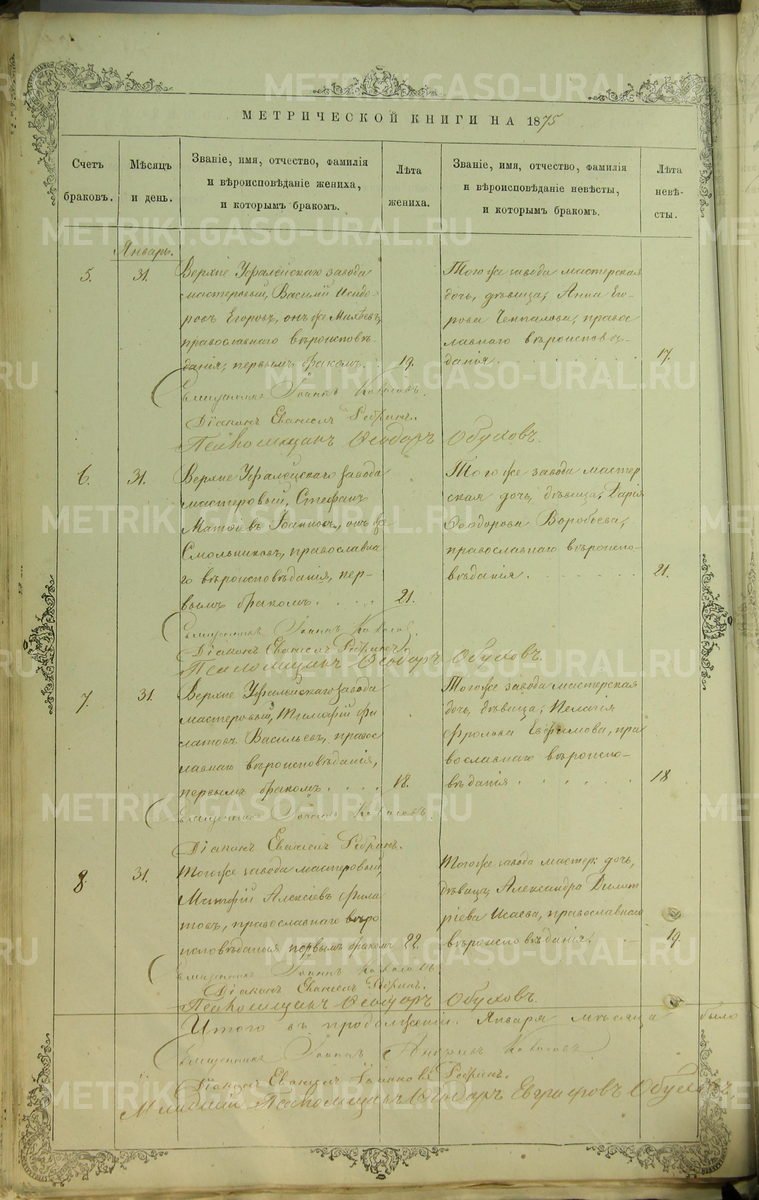 METRIKI.GASO-URAL.RU
МЕТРИЧЕСКОЙ КНИГИ НА 1875
Счетъ браковъ.
Мѣсяцъ и день.
Званіе, имя, отчество, фамилія
и вѣроисповѣданіе жениха,
и которымъ бракомъ.
Лѣта жениха.
Званіе, имя, отчество, фамилія
и вѣроисповѣданіе невѣсты,
и которымъ бракомъ.
Лѣта невѣ-
сты.
Январь.
5.
31.
Верхне Уфалейскаго завода
мастеровый, Василій Исидо-
ровъ Егоровъ, онъ же
православнаго вѣроисповѣ-
данія, первымъ бракомъ.
19.
Тогоже завода мастерская
дочь, дѣвица, Анна Его-
рова православ-
наго вѣроисповѣ-
данія
17.
Священникъ Іоаннъ
Діаконъ Евангелъ
Псаломщикъ Ѳеодоръ Обуховъ.
6.
31.
Верхне Уфалейскаго завода
мастеровый, Стефанъ
онъ же
Смольниковъ, православна-
го вѣроисповѣданія, пер-
вымъ бракомъ
21.
Тогоже завода мастер-
ская дочь, дѣвица, Дарья
Ѳеодорова Воробьева,
православнаго вѣроиспо-
вѣданія
21.
Священникъ Іоаннъ
Діаконъ Евангелъ
Псаломщикъ Ѳеодоръ Обуховъ.
7.
31.
Верхне Уфалейскаго завода
мастеровый, Тимофій Фи-
латовъ Васильевъ, правос-
лавнаго вѣроисповѣданія,
первымъ бракомъ
18.
Тогоже завода мастерская
дочь, дѣвица, Пелагія
Фролова Ефимова, пра-
вославнаго вѣроиспо-
вѣданія
18
Священникъ Іоаннъ
Діаконъ Евангелъ
8.
31.
Тогоже завода мастеровый,
Алексіевъ Фила-
товъ, православнаго вѣро-
исповѣданія первымъ бракомъ
22.
Тогоже завода мастер. дочь,
дѣвица, Александра Димит-
ріева Исаева, православнаго
вѣроисповѣданія
19.
Священникъ Іоаннъ
Діаконъ Евангелъ
Псаломщикъ Ѳеодоръ Обуховъ.
Итого въ продолженіи Января мѣсяца было
Священникъ Іоаннъ
Діаконъ Евангелъ
Псаломщикъ Ѳеодоръ Евграфовъ Обуховъ.